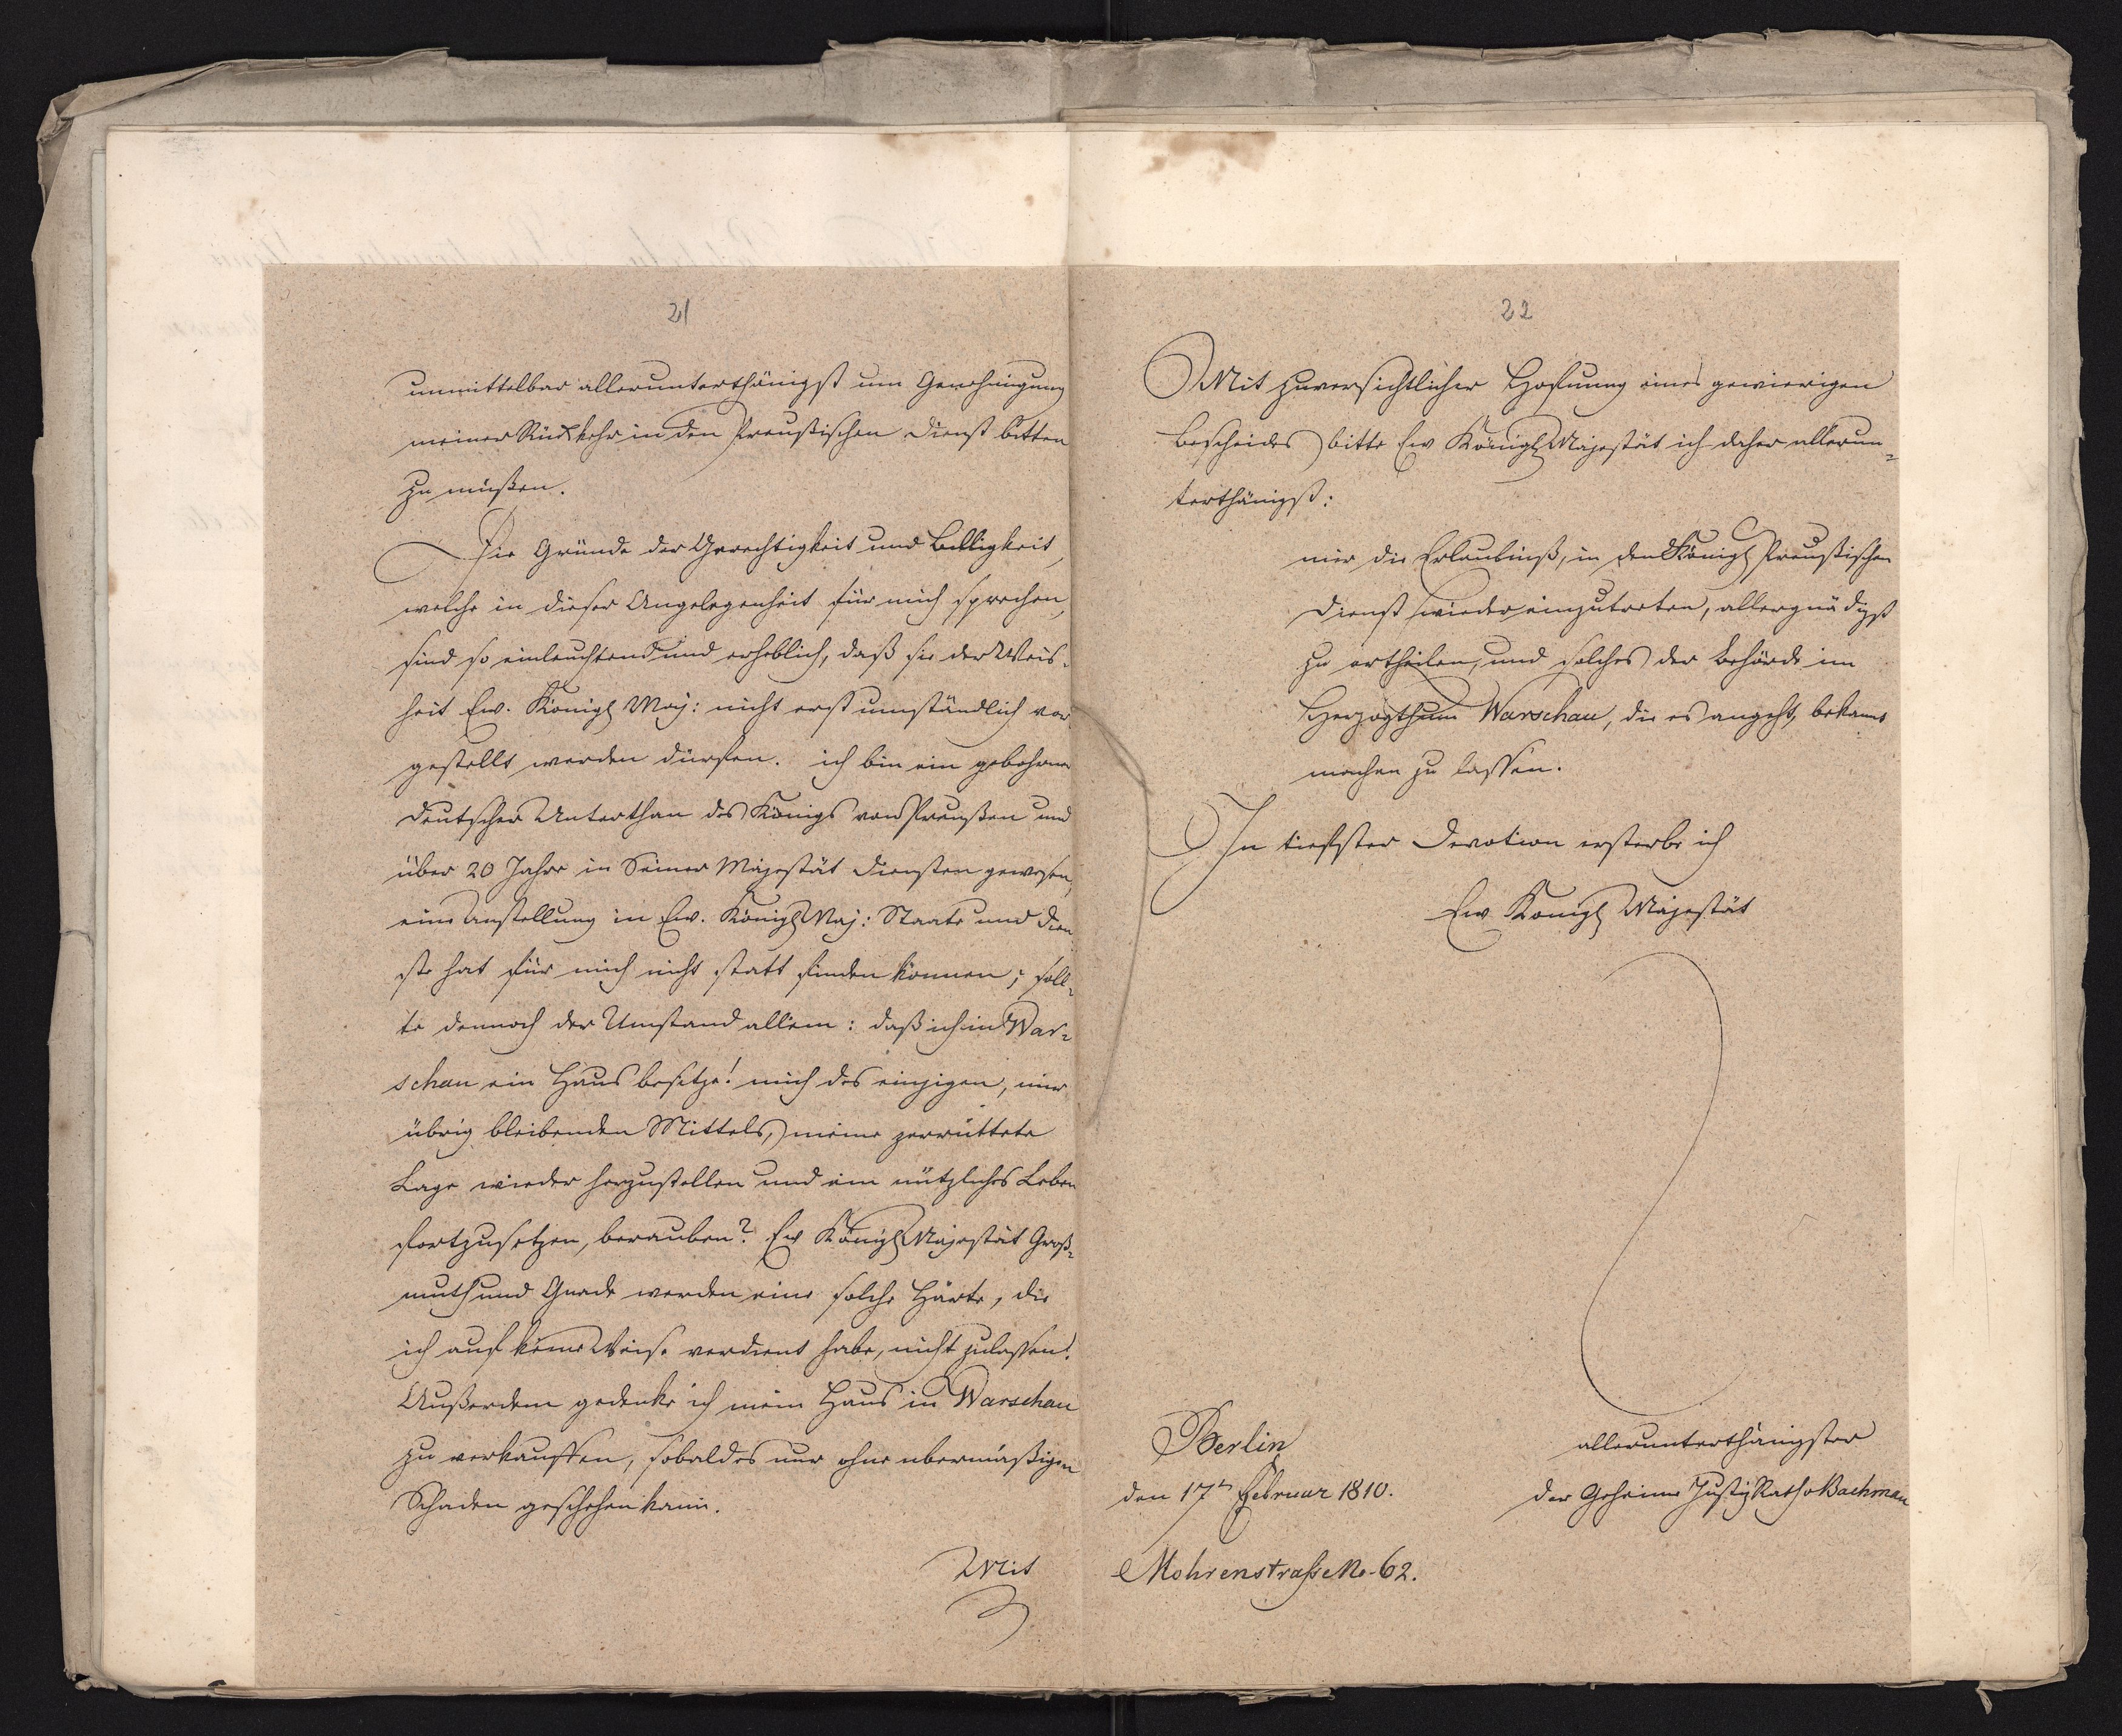 21
unmittelbar allerunterthänigst um Genehmigung
meiner Rückkehr in den Preußischen Dienst bitten
zu müßen.
Die Gründe der Gerechtigkeit und Billigkeit,
welche in dieser Angelegenheit für mich sprechen,
sind so einleuchtend und erheblich, daß sie der Weis-
heit Ew. Königl Maj: nicht erst umständlich vor
gestellt werden dürfen. ich bin ein gebohrner
deutscher Unterthan des Königs von Preußen und
über 20 Jahre in Seiner Majestät Diensten gewesen,
eine Anstellung in Ew. Königl Maj: Staate und Dien
ste hat für mich nicht statt finden können; soll-
te dennoch der Umstand allein: daß ich in War-
schau ein Haus besitze! mich des einzigen, mir
übrig bleibenden Mittels, meine zerrüttete
Lage wieder herzustellen und ein nützliches Leben
fortzusetzen, berauben? Ew Königl Majestät Groß-
muth und Gnade werden eine solche Härte, die
ich auf keine Weise verdient habe, nicht zulassen!
Außerdem gedenke ich mein Haus in Warschau
zu verkauffen, sobald es nur ohne übermäßigen
Schaden geschehen kann.
Mit
22
Mit zuversichtlicher Hofnung eines gewierigen
Bescheides bitte Ew Königl Majestät ich daher allerun-
terthänigst:
mir die Erlaubniß, in den Königl Preußischen
Dienst wieder einzutreten, allergnädigst
zu ertheilen, und solches der Behörde im
Herzogthum Warschau, die es angeht, bekannt
machen zu lassen.
In tiefster Devotion ersterbe ich
Ew Königl Majestät
Berlin
den 17ten Februar 1810.
Mohrenstraße No. 62.
allerunterthänigster
der Geheime Justiz Rath v Bachman